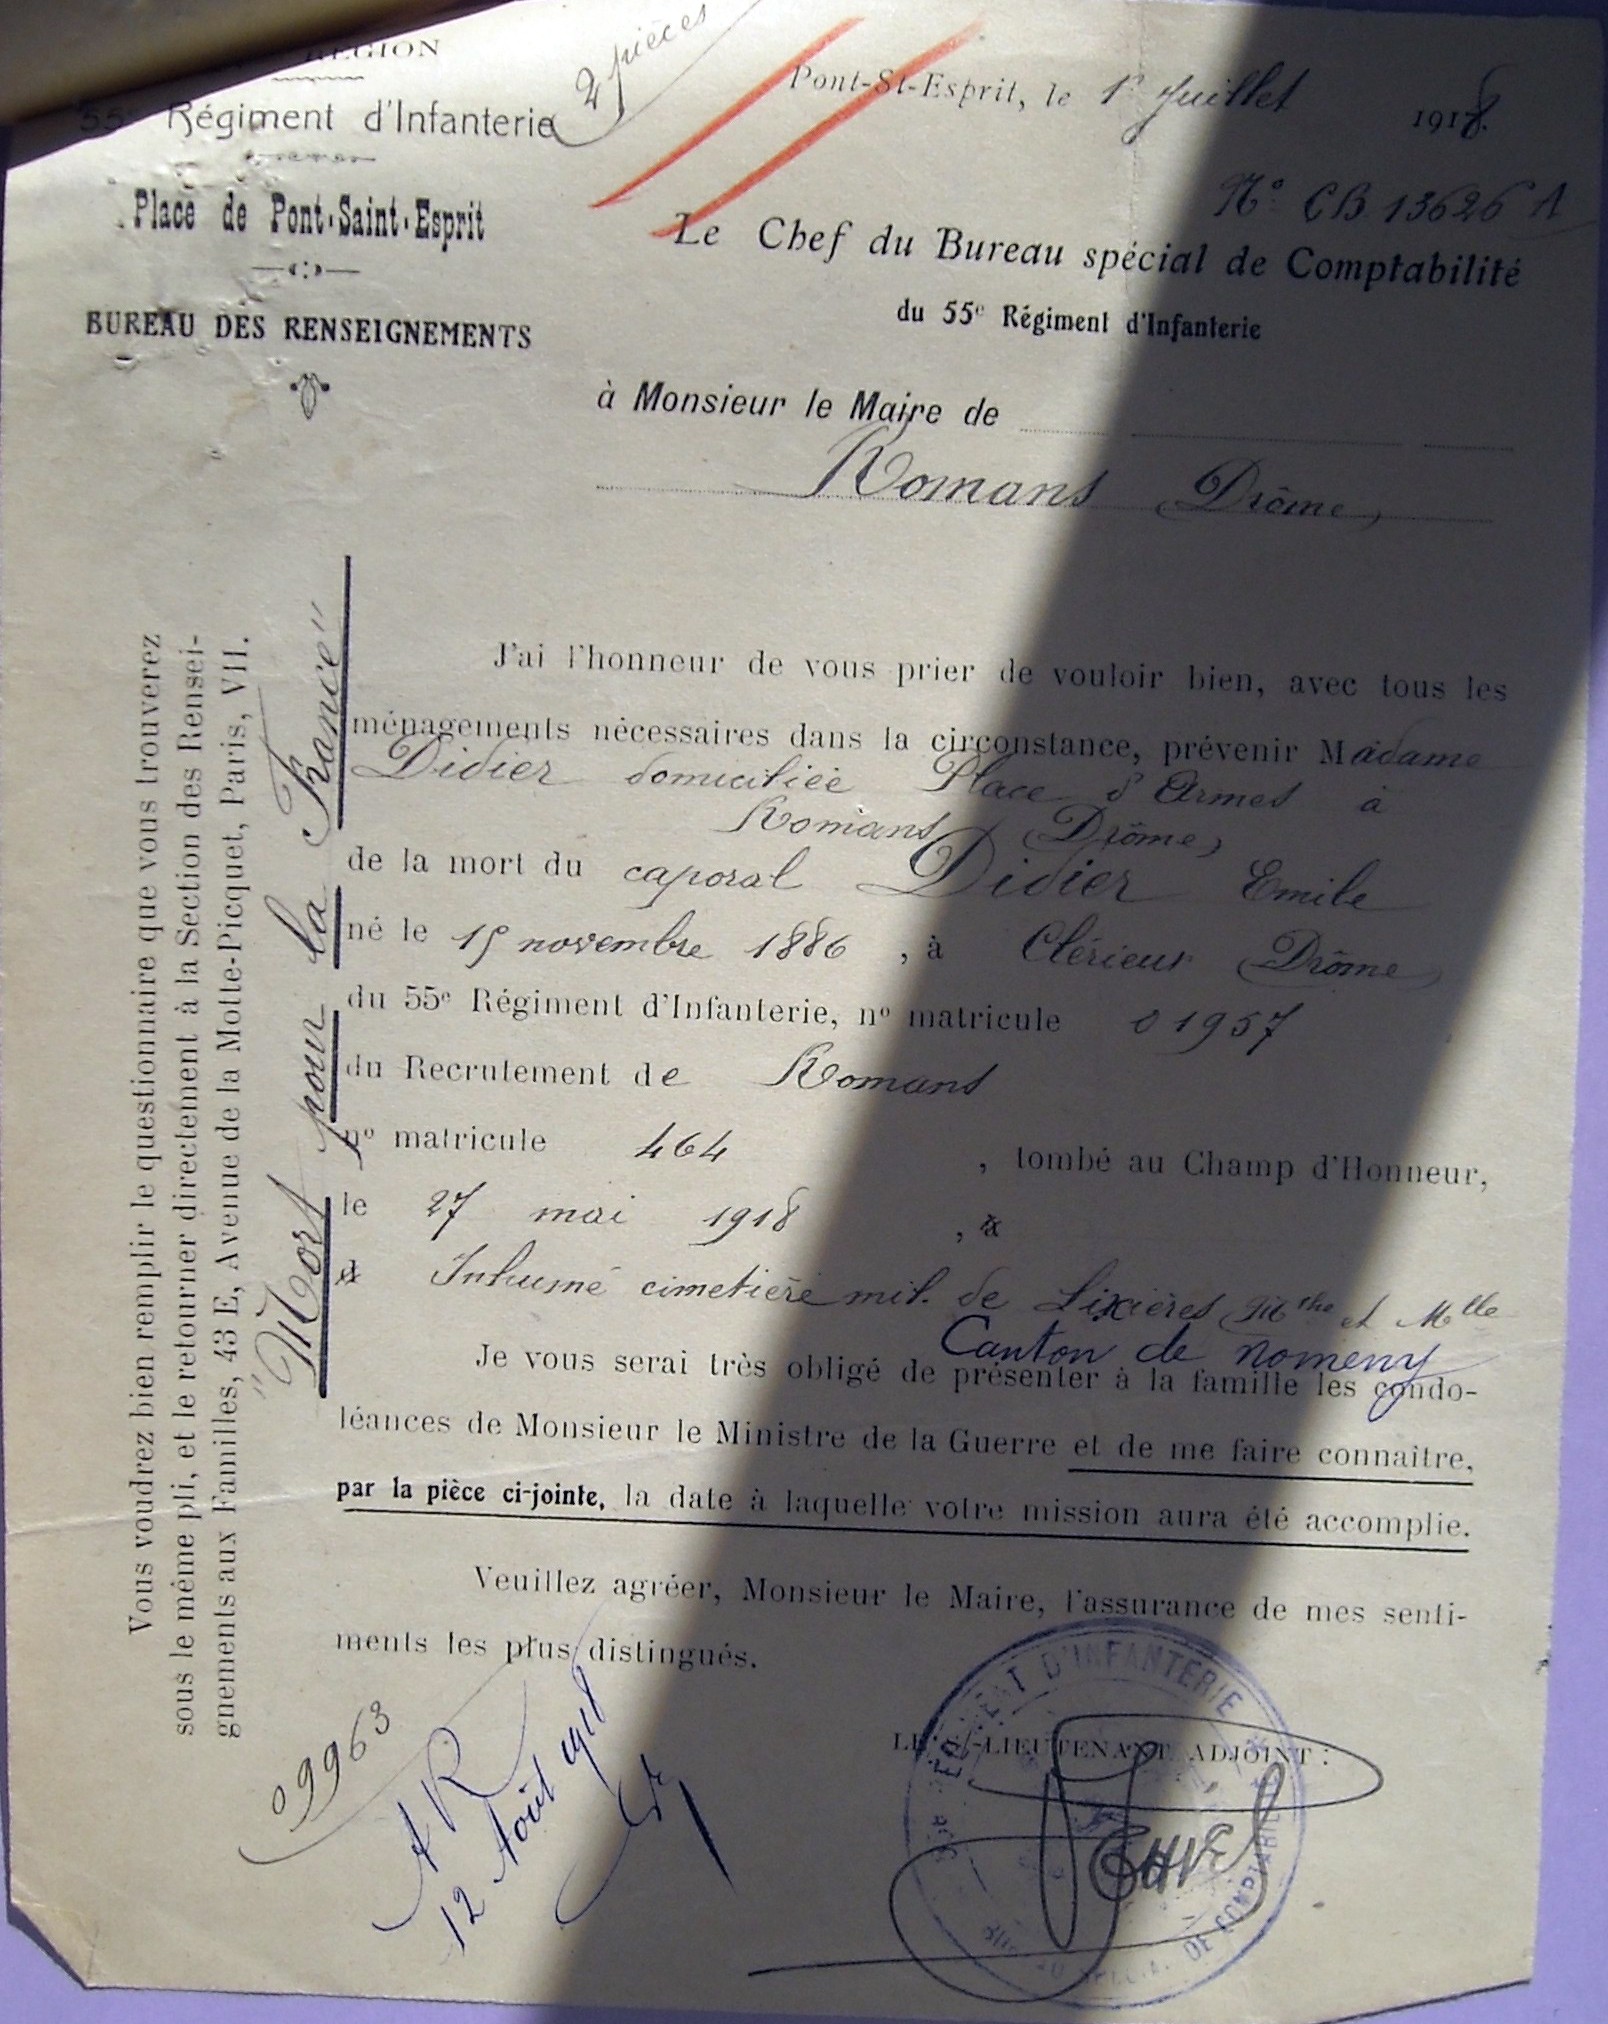 RÉGION
55e Régiment d'Infanterie
2 pièces
Place de Pont-Saint-Esprit
BUREAU DES RENSEIGNEMENTS
Pont-St-Esprit, le 1er Juillet 1918.
No CB 13626 A
Le Chef du Bureau spécial de Comptabilité
du 55e Régiment d'Infanterie
à Monsieur le Maire de
Romans (Drôme)
J'ai l'honneur de vous prier de vouloir bien, avec tous les
ménagements nécessaires dans la circonstance, prévenir Madame
Didier domiciliée Place d'Armes à
Romans (Drôme)
de la mort du caporal Didier Emile
né le 15 novembre 1886, à Clérieux (Drôme)
du 55e Régiment d'Infanterie, no matricule 01957
du Recrutement de Romans
no matricule 464, tombé au Champ d'Honneur,
le 27 mai 1918, à
d Inhumé cimetière mil. de Lixières Mthe et Mlle
Canton de Nomeny
Je vous serai très obligé de présenter à la famille les condo-
léances de Monsieur le Ministre de la Guerre et de me faire connaître,
par la pièce ci-jointe, la date à laquelle votre mission aura été accomplie.
Veuillez agréer, Monsieur le Maire, l'assurance de mes senti-
ments les plus distingués.
LE S/-LIEUTENANT ADJOINT :
RÉGIMENT D'INFANTERIE
BUREAU SPÉCIAL DE COMPTABILITÉ
09963
AR
12 Août 1918
"Mort pour la France"
Vous voudrez bien remplir le questionnaire que vous trouverez
sous le même pli, et le retourner directement à la Section des Rensei-
gnements aux Familles, 43 E, Avenue de la Motte-Picquet, Paris, VII.